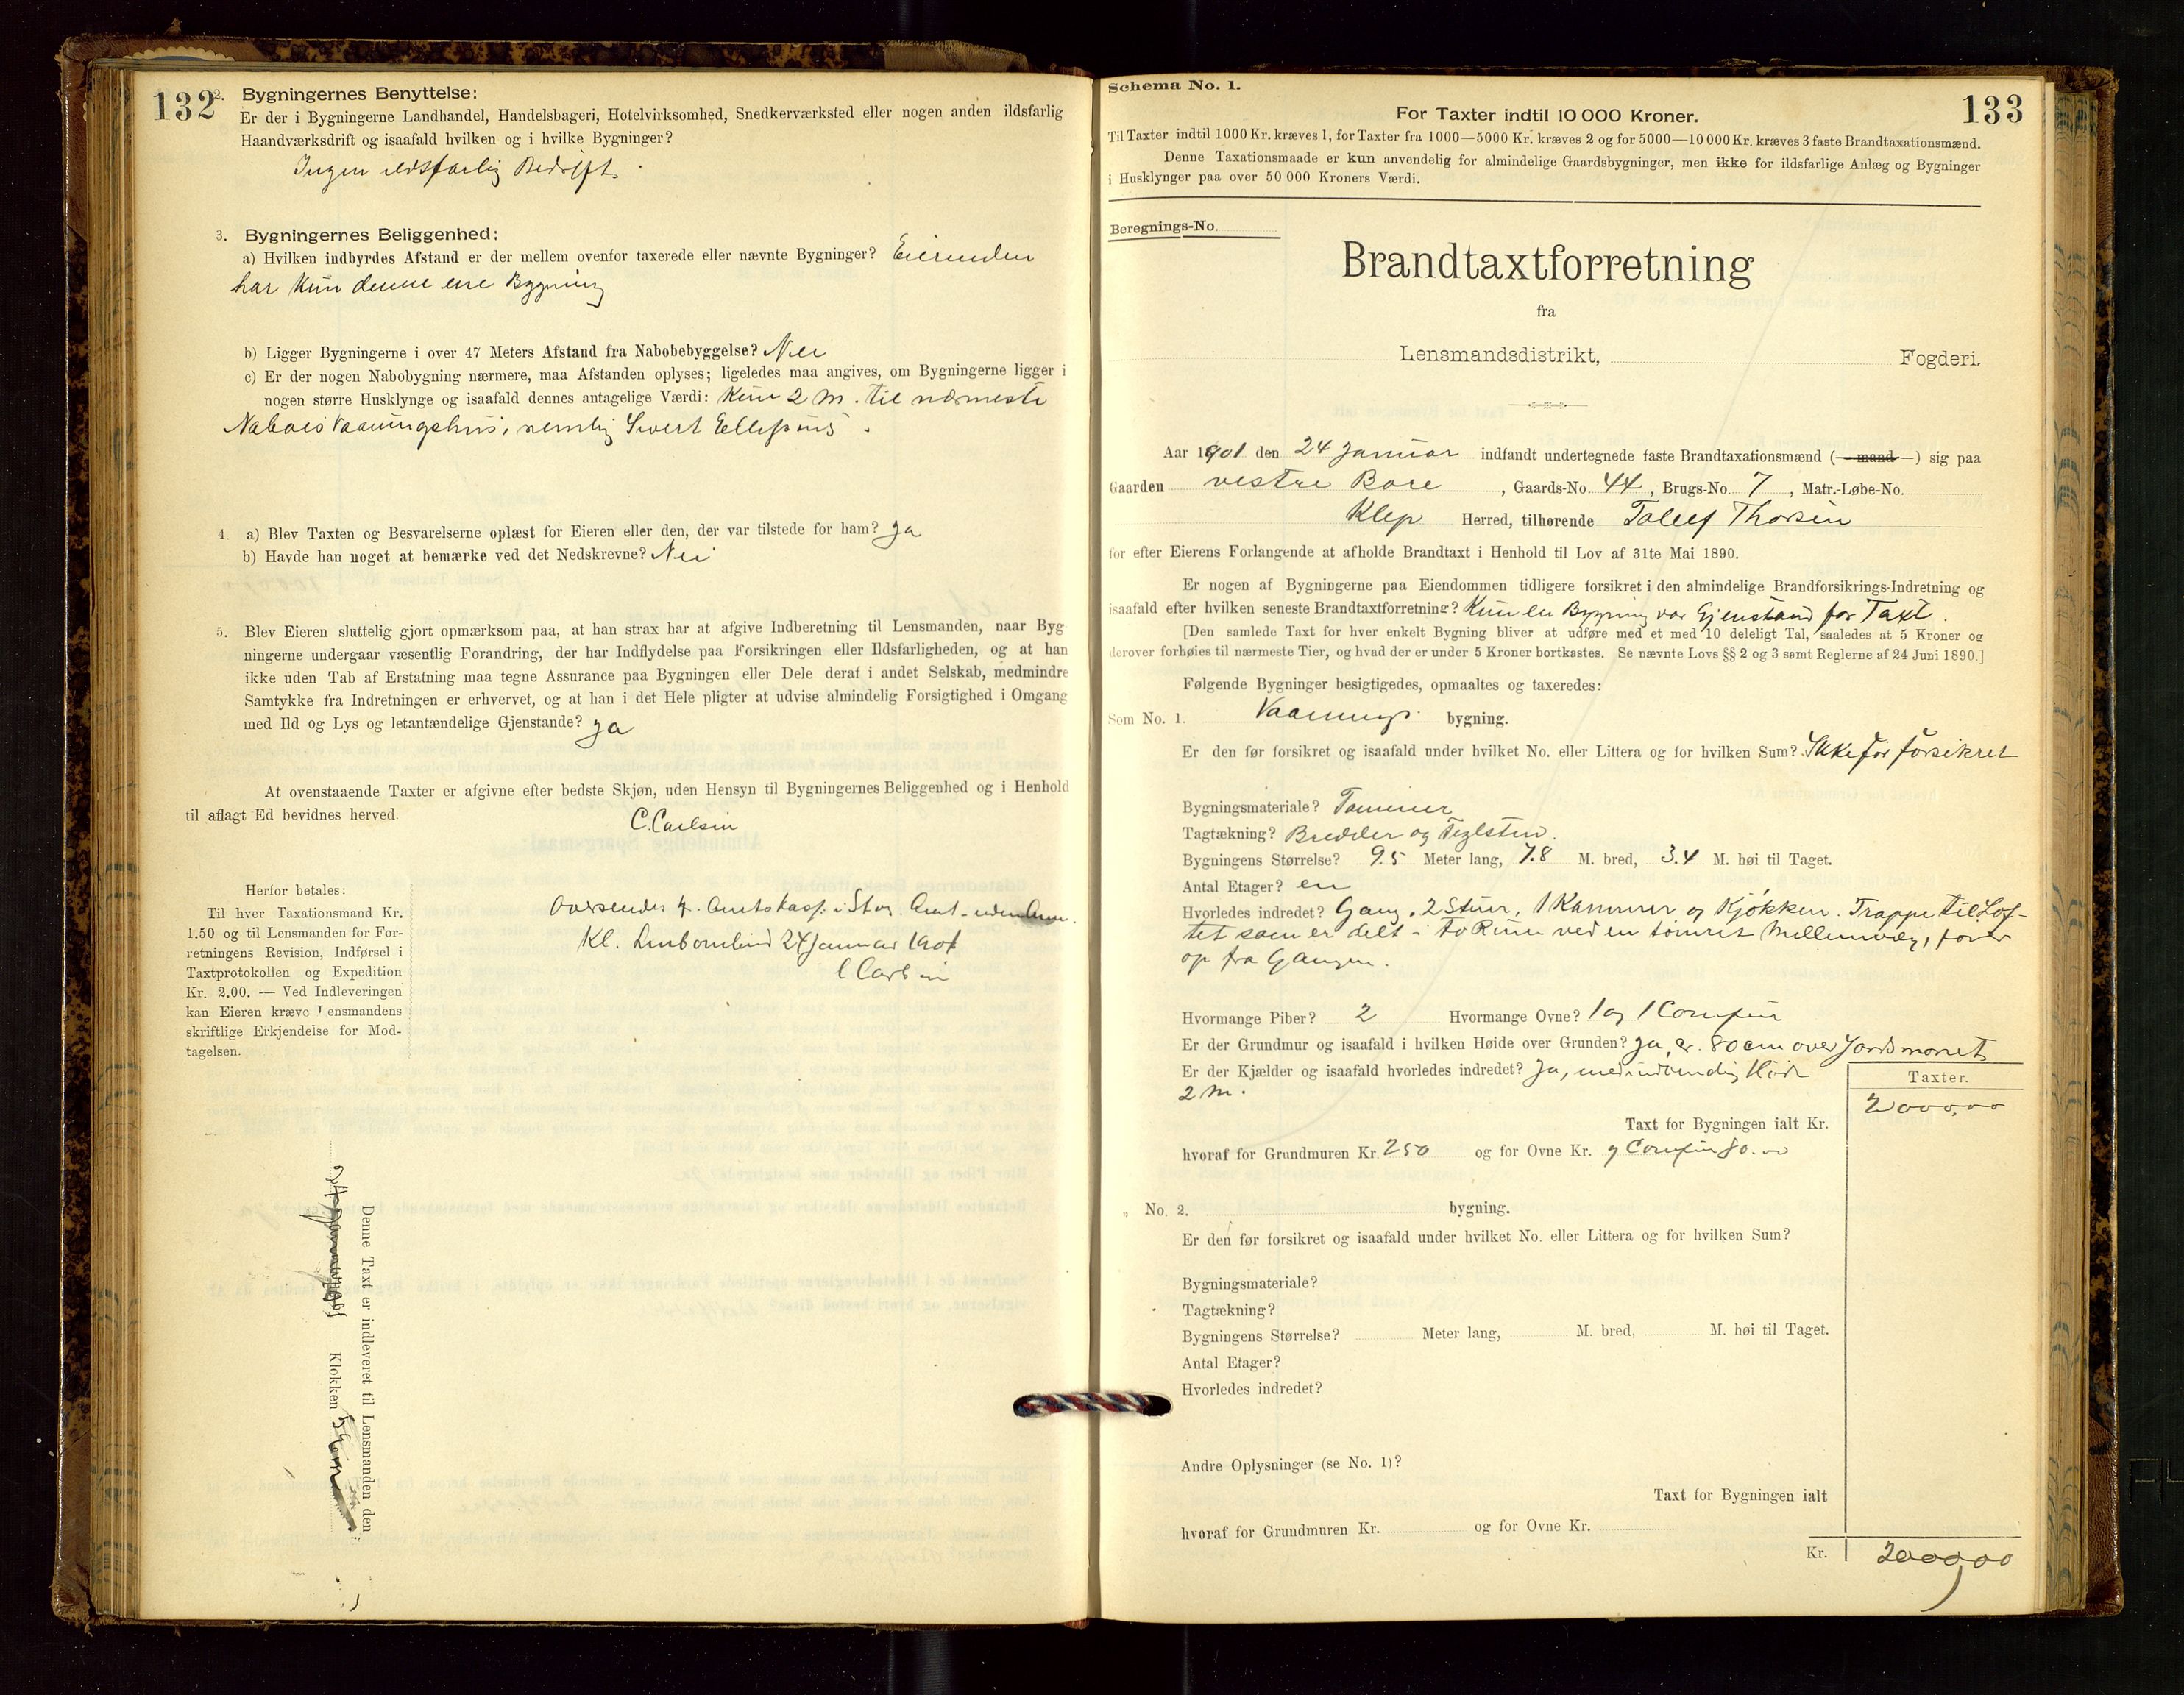 132
2. Bygningernes Benyttelse:
Er der i Bygningerne Landhandel, Handelsbageri, Hotelvirksomhed, Snedkerværksted eller nogen anden ildsfarlig
Haandværksdrift og isaafald hvilken og i hvilke Bygninger?
Ingen ildsfarlig Bedrift.
3. Bygningernes Beliggenhed:
a) Hvilken indbyrdes Afstand er der mellem ovenfor taxerede eller nævnte Bygninger? Eierinden
har Kun denne ene Bygning
b) Ligger Bygningerne i over 47 Meters Afstand fra Nabobebyggelse? Nei
c) Er der nogen Nabobygning nærmere, maa Afstanden oplyses; ligeledes maa angives, om Bygningerne ligger i
nogen større Husklynge og isaafald dennes antagelige Værdi: Kun 2 M. til nærmeste
Naboes Vaaningshus, nemlig Sivert
4. a) Blev Taxten og Besvarelserne oplæst for Eieren eller den, der var tilstede for ham? Ja
b) Havde han noget at bemærke ved det Nedskrevne? Nei
5. Blev Eieren sluttelig gjort opmærksom paa, at han strax har at afgive Indberetning til Lensmanden, naar Byg
ningerne undergaar væsentlig Forandring, der har Indflydelse paa Forsikringen eller Ildsfarligheden, og at han
ikke uden Tab af Erstatning maa tegne Assurance paa Bygningen eller Dele deraf i andet Selskab, medmindre
Samtykke fra Indretningen er erhvervet, og at han i det Hele pligter at udvise almindelig Forsigtighed i Omgang
med Ild og Lys og letantændelige Gjenstande? Ja
At ovenstaaende Taxter er afgivne efter bedste Skjøn, uden Hensyn til Bygningernes Beliggenhed og i Henhold
til aflagt Ed bevidnes herved.
C. Carlsen
Herfor betales:
Til hver Taxationsmand Kr.
1.50 og til Lensmanden for For-
retningens Revision, Indførsel i
Taxtprotokollen og Expedition
Kr. 2.00. — Ved Indleveringen
kan Eieren kræve Lensmandens
skriftlige Erkjendelse for Mod-
tagelsen.
Oversendes
Kl. 24 Januar 1901
C Carlsen
Denne Taxt er indleveret til Lensmanden den
Klokken
Schema No. 1.
133
For Taxter indtil 10 000 Kroner.
Til Taxter indtil 1000 Kr. kræves 1, for Taxter fra 1000—5000 Kr. kræves 2 og for 5000—10 000 Kr. kræves 3 faste Brandtaxationsmænd.
Denne Taxationsmaade er kun anvendelig for almindelige Gaardsbygninger, men ikke for ildsfarlige Anlæg og Bygninger
i Husklynger paa over 50 000 Kroners Værdi.
Beregnings-No.
Brandtaxtforretning
fra
Lensmandsdistrikt, Fogderi.
Aar 1901 den 24 Januar indfandt undertegnede faste Brandtaxationsmænd (—mand—) sig paa
Gaarden vestre Bore, Gaards-No. 44, Brugs-No. 7, Matr.-Løbe-No.
Klep Herred, tilhørende Tollef Thorsen
for efter Eierens Forlangende at afholde Brandtaxt i Henhold til Lov af 31te Mai 1890.
Er nogen af Bygningerne paa Eiendommen tidligere forsikret i den almindelige Brandforsikrings-Indretning og
isaafald efter hvilken seneste Brandtaxtforretning? Kun en Bygning var Gjenstand for Taxt.
[Den samlede Taxt for hver enkelt Bygning bliver at udføre med et med 10 deleligt Tal, saaledes at 5 Kroner og
derover forhøies til nærmeste Tier, og hvad der er under 5 Kroner bortkastes. Se nævnte Lovs §§ 2 og 3 samt Reglerne af 24 Juni 1890.]
Følgende Bygninger besigtigedes, opmaaltes og taxeredes:
Som No. 1. Vaanings bygning.
Er den før forsikret og isaafald under hvilket No. eller Littera og for hvilken Sum? Ikke før forsikret
Bygningsmateriale? Tømmer
Tagtækning? Bredder og Teglsten.
Bygningens Størrelse? 9.5 Meter lang, 7.8 M. bred, 3.4 M. høi til Taget.
Antal Etager? en
Hvorledes indredet? Gang, 2 Stuer, 1 Kammer og Kjøkken. Trappe til Lof-
tet som er delt i to Rum ved en tømret Mellemvæg, fører
op fra Gangen.
Hvormange Piber? 2 Hvormange Ovne? 1 og 1 Comfur
Er der Grundmur og isaafald i hvilken Høide over Grunden? Ja, er 80 cm over Jordsmonnet
Er der Kjælder og isaafald hvorledes indredet? Ja, med indvendig Høide
2 M.
Taxter.
Taxt for Bygningen ialt Kr. 2000,00
hvoraf for Grundmuren Kr. 250 og for Ovne Kr. og Comfur 80.00
„ No. 2. bygning.
Er den før forsikret og isaafald under hvilket No. eller Littera og for hvilken Sum?
Bygningsmateriale?
Tagtækning?
Bygningens Størrelse? Meter lang, M. bred, M. høi til Taget.
Antal Etager?
Hvorledes indredet?
Andre Oplysninger (se No. 1)?
Taxt for Bygningen ialt
hvoraf for Grundmuren Kr. og for Ovne Kr.
Kr. 2000,00